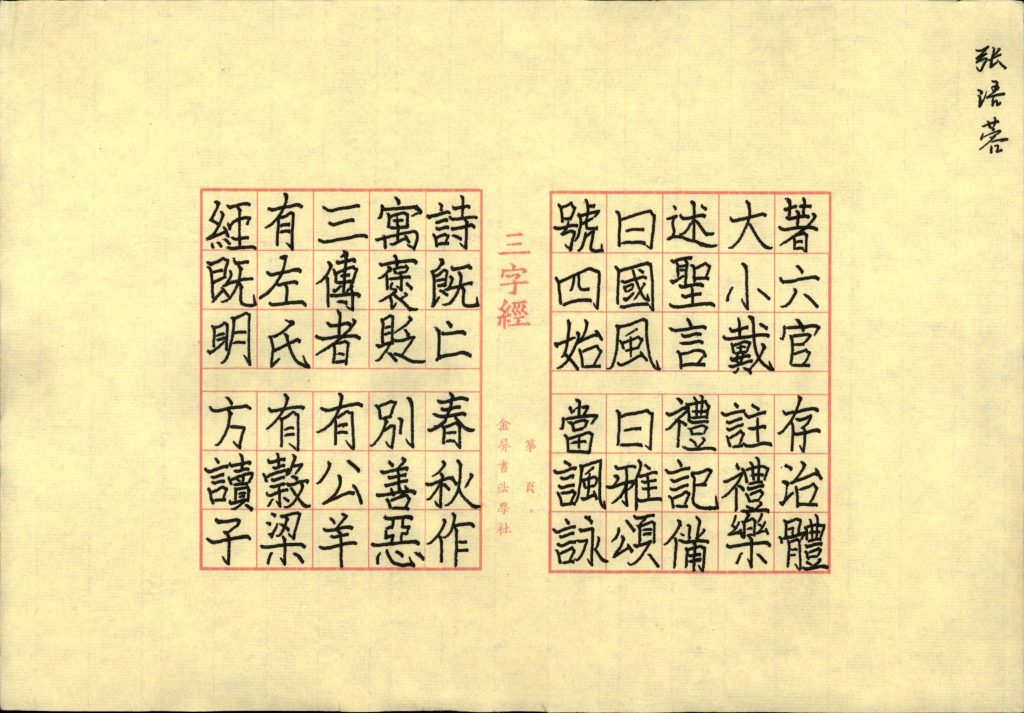 张语蓉
著六官 存治體
大小戴 註禮樂
述聖言 禮記備
曰國風 曰雅頌
號四始 當諷詠
三字經
第 頁
金屏書法學社
詩既亡 春秋作
寓褒貶 別善惡
三傳者 有公羊
有左氏 有榖梁
經既明 方讀子